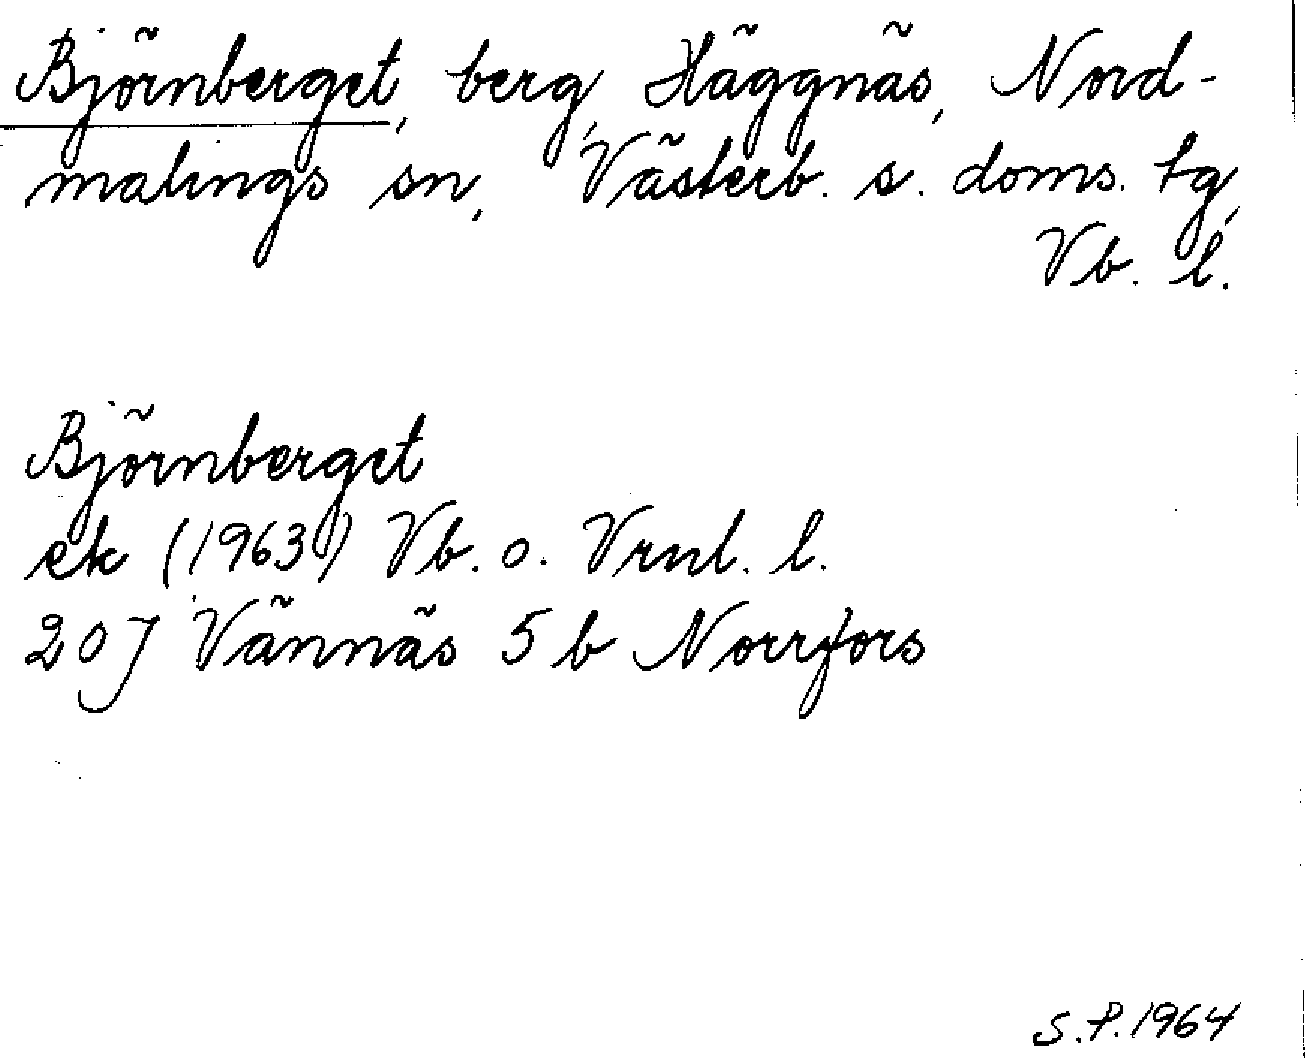 Björnberget, berg, Häggnäs, Nord-
malings sn, Västerb. s. doms. tg,
Vb. l.
Björnberget
ek (1963) Vb. o. Vrnl. l.
20J Vännäs 5b Norrfors
S.P. 1964